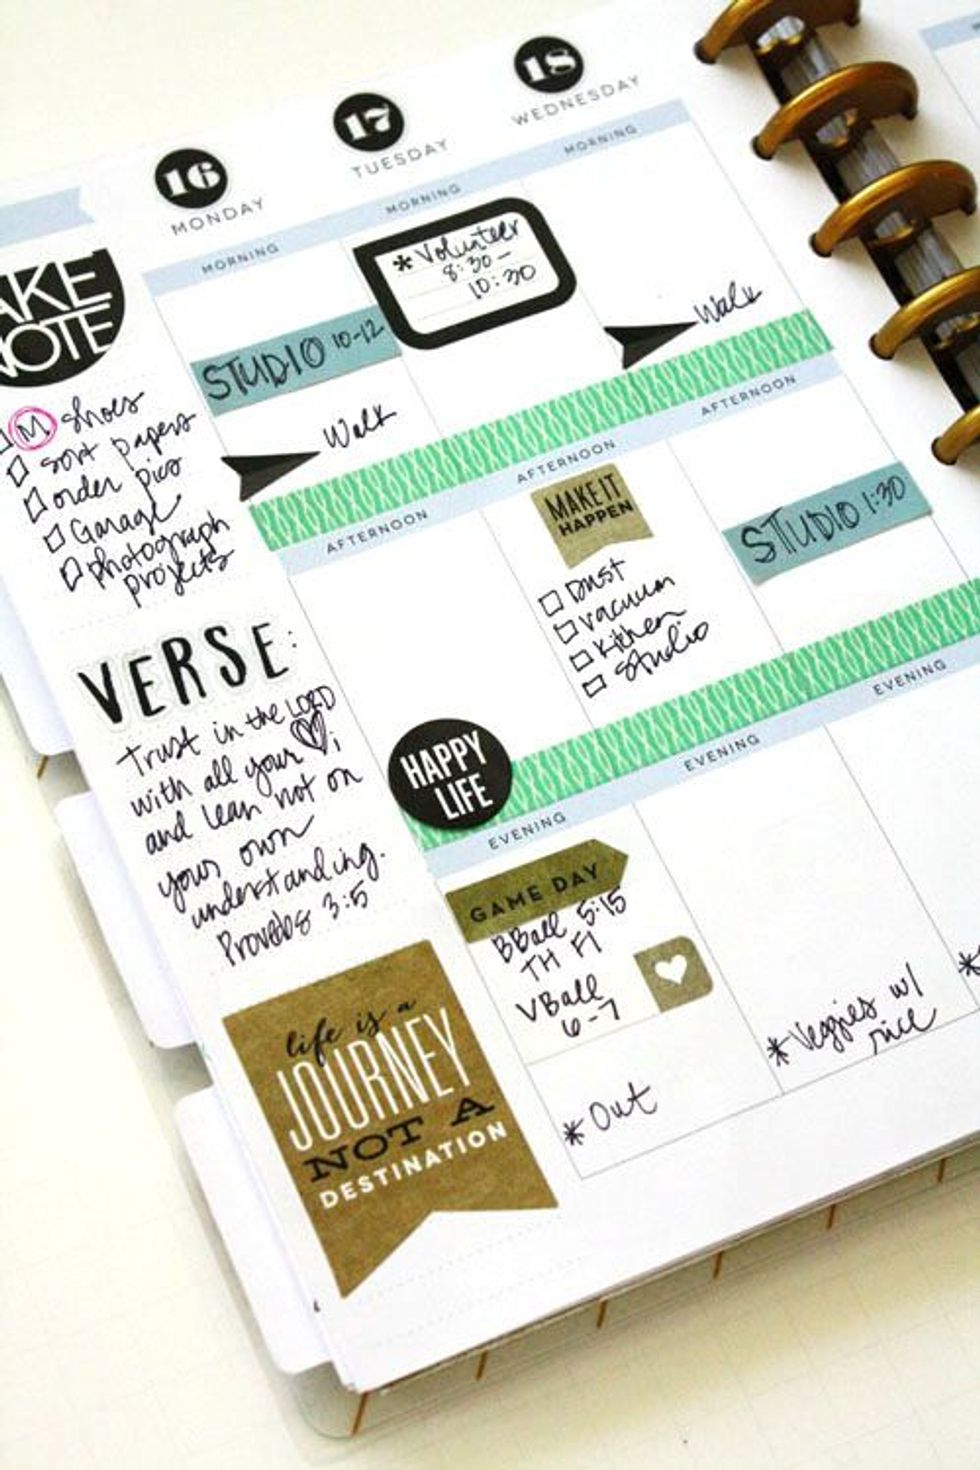 16
MONDAY
17
TUESDAY
18
WEDNESDAY
MORNING
MORNING
MORNING
AKE
NOTE
M shoes
sort papers
order pics
Garage
photograph
projects
VERSE:
Trust in the LORD
with all your ♡;
and lean not on
your own
understanding.
Proverbs 3:5
life is a
JOURNEY
NOT A
DESTINATION
STUDIO 10-12
Walk
* Volunteer
8:30-
10:30
Walk
AFTERNOON
AFTERNOON
AFTERNOON
MAKE IT
HAPPEN
Dust
vacuum
kitchen
Studio
STUDIO 1:30
HAPPY
LIFE
EVENING
EVENING
EVENING
GAME DAY
BBall 5:15
TH FI
VBall
6-7
* Out
* Veggies w/
rice
*